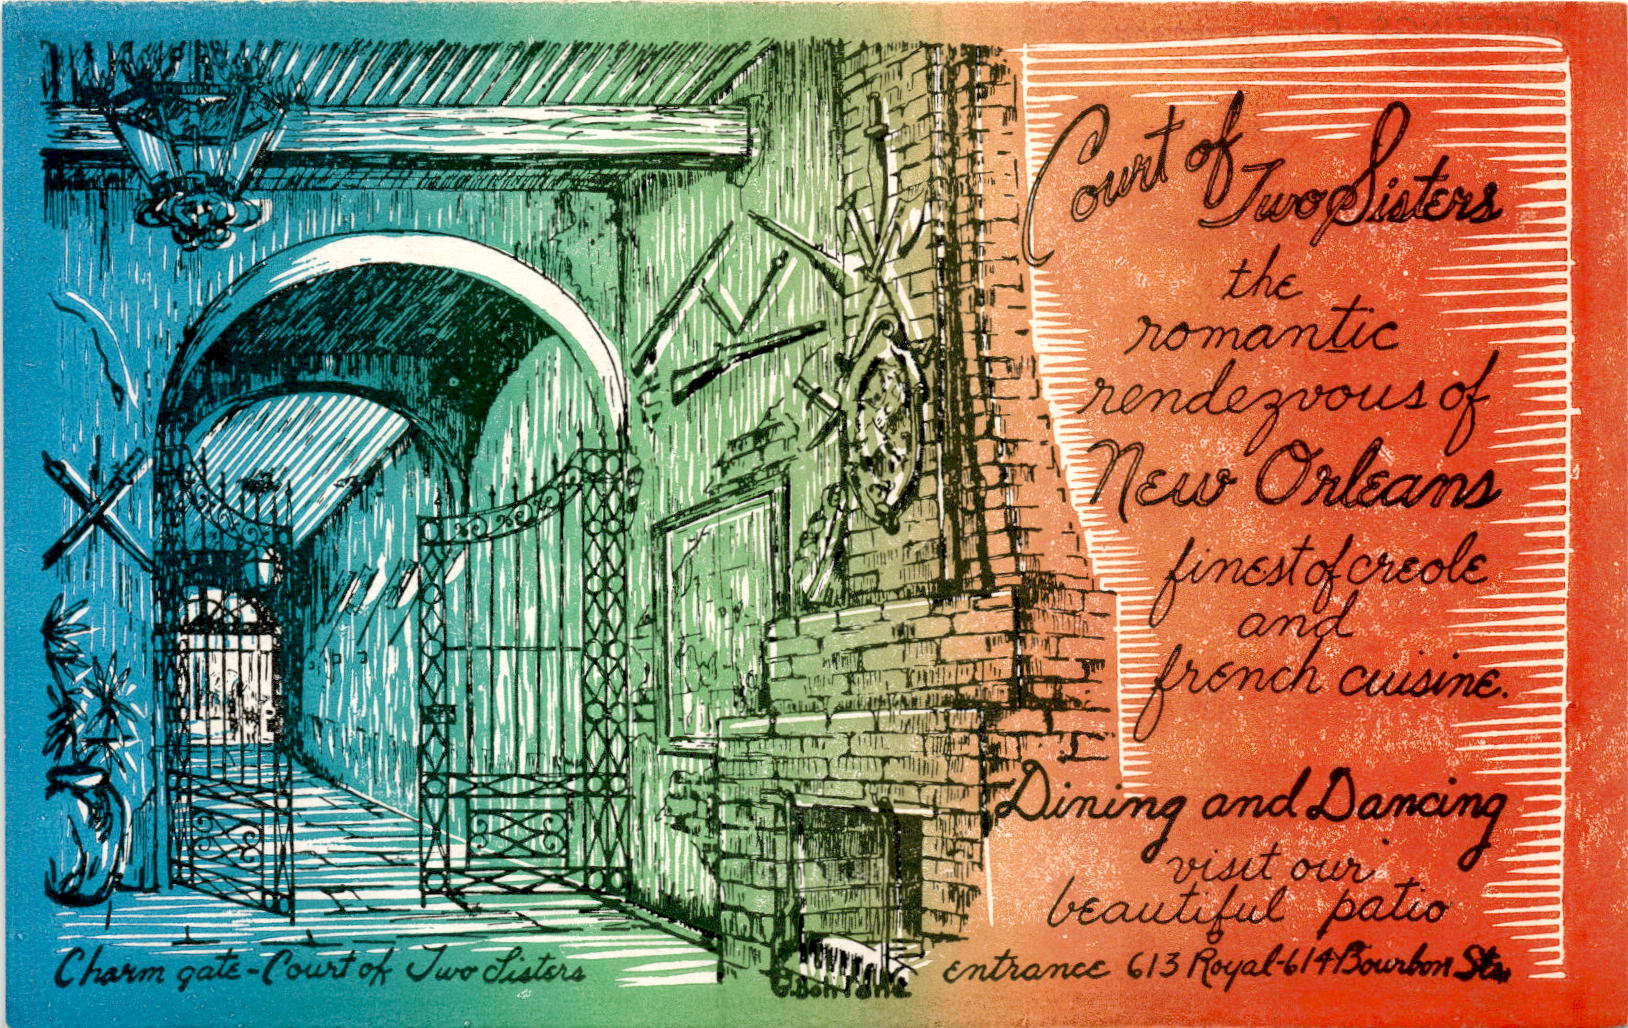 Court of
Two Sisters
the
romantic
rendezvous of
New Orleans
finest of creole
and
french cuisine.
Dining and Dancing
visit our
beautiful patio
entrance 613 Royal-614 Bourbon Sts.
Charm gate-Court of Two Sisters